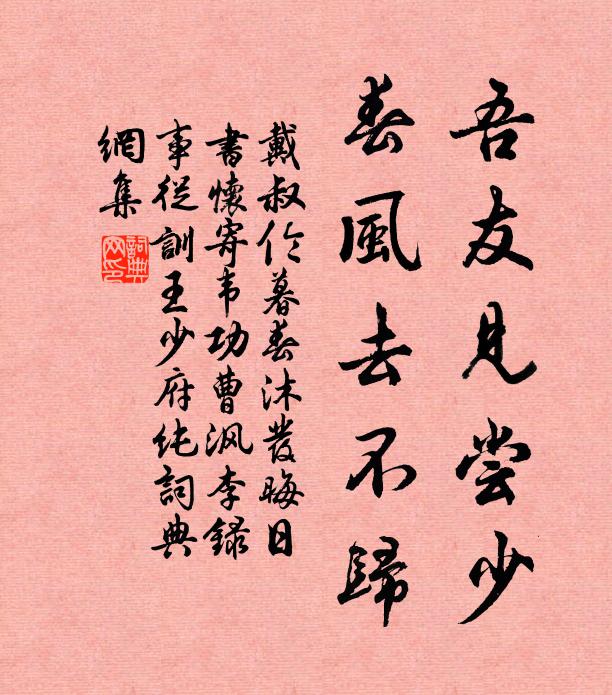 吾友見嘗少
春風去不歸
戴叔伦暮春沐發晦日
書懷寄韦功曹沨李録
事從訓王少府純詞典
網集
詞典網印